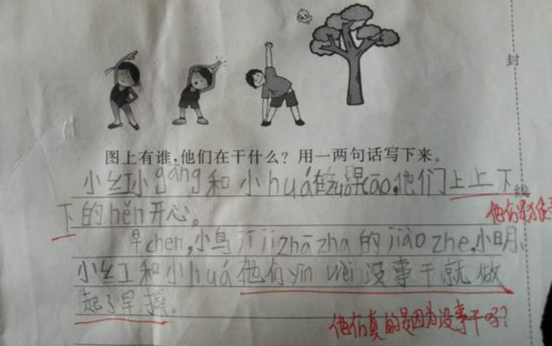 封
图上有谁,他们在干什么?用一两句话写下来。
小红小gāng和小huá在zuò早cāo,他们上上下
线
下的hěn开心。
他们是
早chen,小鸟jījizhāzha的jiào zhe,小明、
小红和小huá他们yīn wèi没事干就做
起了早操。
他们真的是因为没事干吗?